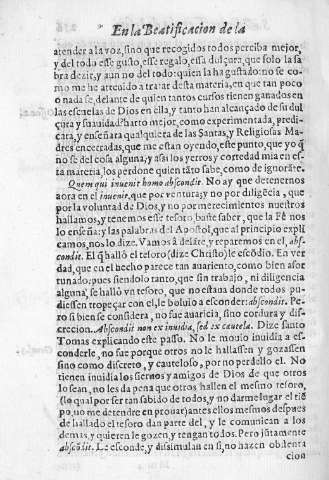 En la Beatificacion de la
atender a la voz, sino que recogidos todos perciba mejor,
y del todo esse gusto, esse regalo, essa dulçura, que solo la sa
bra dezir, y aun no del todo: quien la ha gustado: no se co-
mo me he atreuido a tratar desta materia, en que tan poco
o nada se, delante de quien tantos cursos tienen ganados en
las escuelas de Dios en ella, y tanto han alcançado de su dul
çura y suauidad. Harto mejor, como experimentada, predi-
cara, y enseñara qualquiera de las Santas, y Religiosas Ma
dres encerradas, que me estan oyendo, este punto, que yo q̃
no se del cosa alguna, y assi los yerros y cortedad mia en es-
ta materia, los perdone quien tãto sabe, como de ignorãte.
Quem qui inuenit homo abscondit. No ay que detenernos
aora en el inuenit, que por ventura, y no por diligẽcia, que
por la voluntad de Dios, y no por merecimientos nuestros
hallamos, y tenemos esse tesoro, baste saber, que la Fè nos
lo enseña: y las palabras del Apostol, que al principio expli
camos, nos lo dize. Vamos â delãte, y reparemos en el, abs-
condit. El q̃ hallò el tesoro (dize Christo) le escõdio. En ver
dad, que en el hecho parece tan auariento, como bien afor
tunado: pues siendolo tanto, que sin trabajo, ni diligencia
alguna, se hallò vn tesoro, que no estaua donde todos pu-
diessen tropeçar con el, le boluio a esconder: abscondit. Pe-
ro si bien se considera, no fue auaricia, sino cordura y dis-
crecion. Abscondit non ex inuidia, sed ex cautela. Dize santo
Tomas explicando este passo. No le mouio inuidia a es-
conderle, no fue porque otros no le hallassen y gozassen
sino como discreto, y cauteloso, por no perdello el. No
tienen inuidia los sieruos y amigos de Dios de que otros
lo sean, no les da pena que otros hallen el mesmo tesoro,
(lo qual por ser tan sabido de todos, y no darme lugar el tiẽ
po, no me detendre en prouar) antes ellos mesmos despues
de hallado el tesoro dan parte del, y le comunican a los
demas, y quieren le gozen, y tengan todos. Pero jũtamente
abscõdit. Le esconde, y dissimulan en si, no hazen obstenta
cion